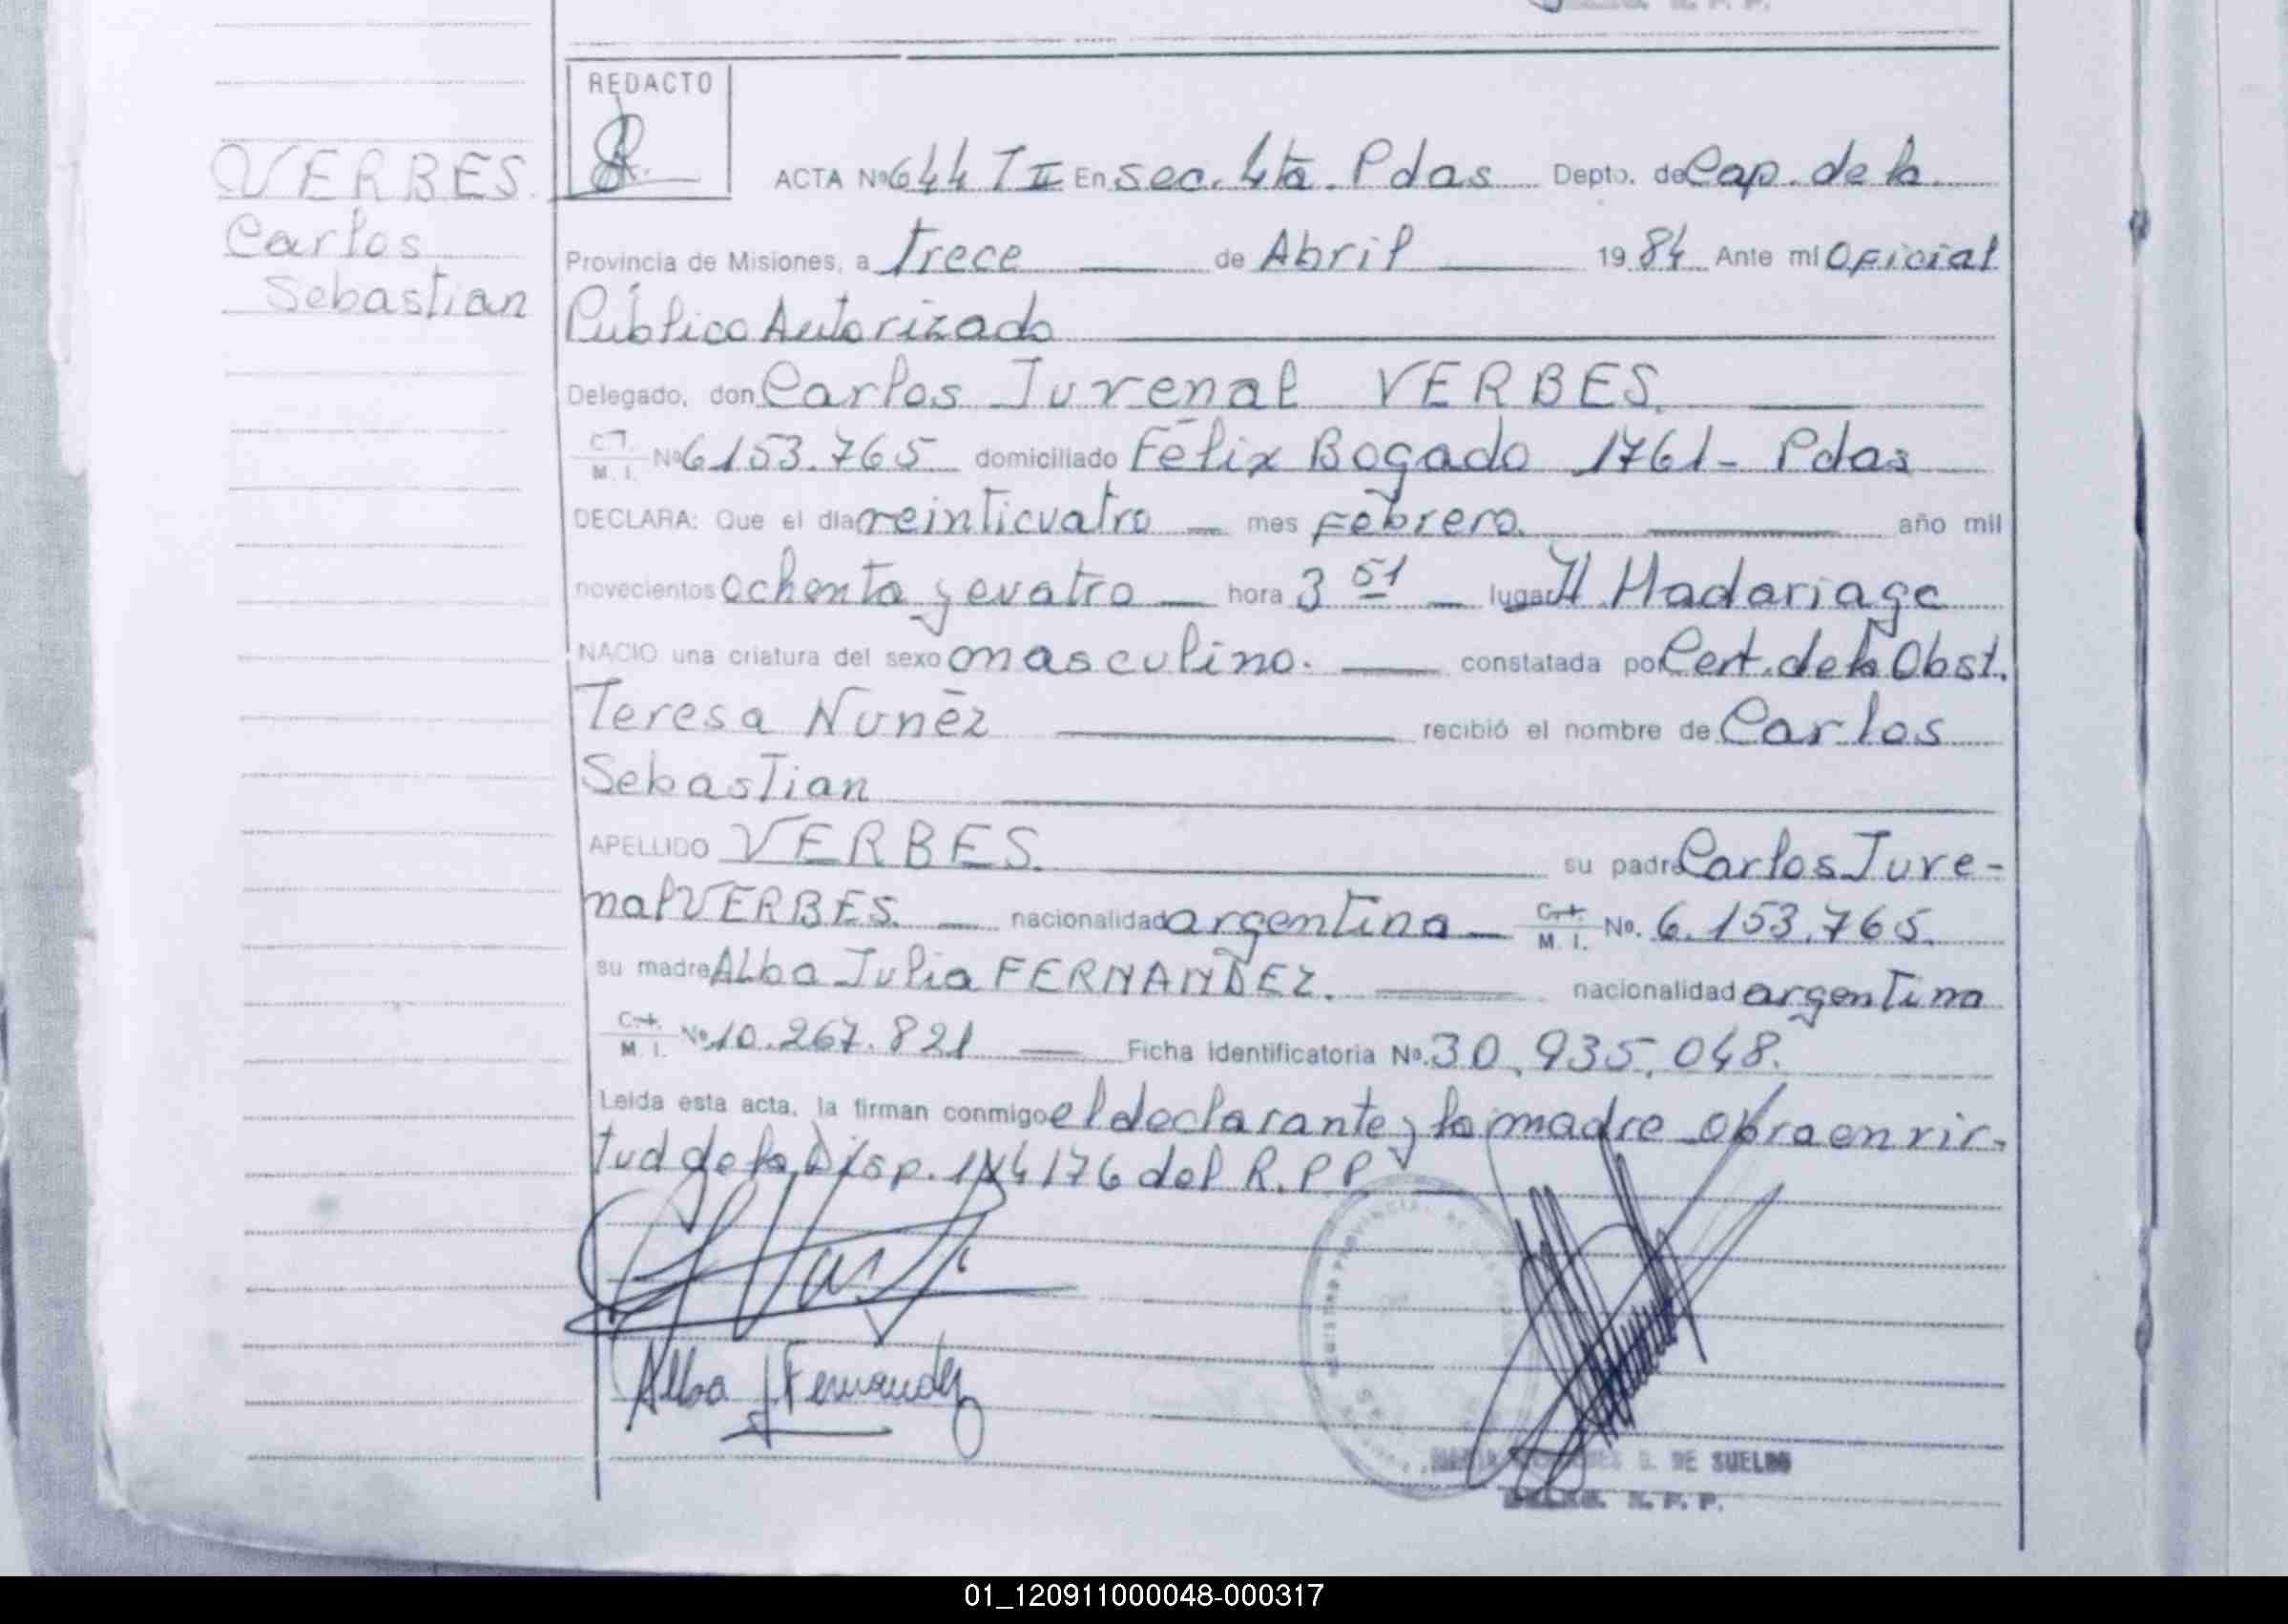 REDACTO
VERBES.
Carlos
Sebastian
ACTA Nº 644 T II En Sec. 4ta. Pdas Depto. de Cap. de la
Provincia de Misiones, a Trece de Abril 1984 Ante mi Oficial
Público Autorizado
Delegado, don Carlos Juvenal VERBES.
C.I. M. I. Nº 6153.765 domiciliado Félix Bogado 1761- Pdas
DECLARA: Que el dia veinticuatro mes Febrero. año mil
novecientos ochenta y cuatro hora 3 51 lugar H. Madariaga
NACIO una criatura del sexo masculino. constatada por Cert. de la Obst.
Teresa Nuñez recibió el nombre de Carlos
Sebastian
APELLIDO VERBES. su padre Carlos Juve-
nal VERBES. nacionalidad argentina C.I. M. I. No. 6.153.765.
su madre Alba Julia FERNANDEZ. nacionalidad argentina
C.I. M. I. Nº 10.267.821 Ficha Identificatoria Nº. 30.935.048.
Leida esta acta, la firman conmigo el declarante y la madre obra en vir-
tud de la Disp. 176 del R.P.P
Alba J Fernandez
DE SUELDO
R. P. P.
01_120911000048-000317